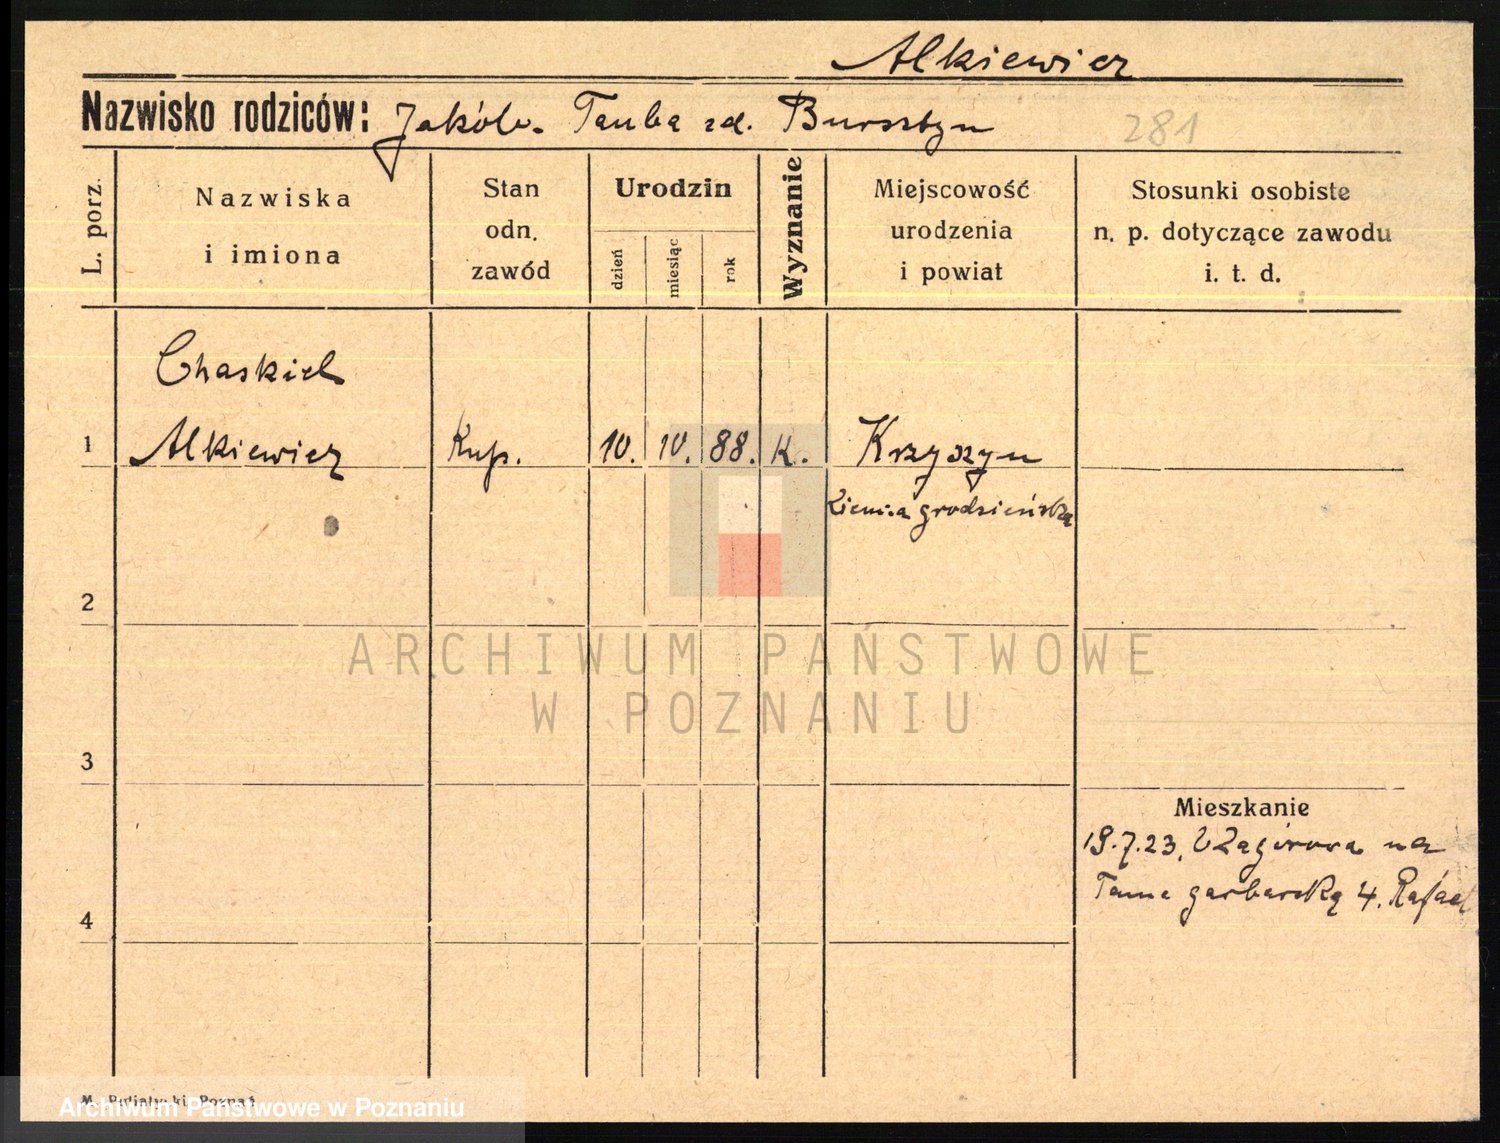 Alkiewicz
Nazwisko rodziców: Jakób. Tauba zd. Bursztyn
281
L. porz.
Nazwiska
i imiona
Stan
odn.
zawód
Urodzin
dzień
miesiąc
rok
Wyznanie
Miejscowość
urodzenia
i powiat
Stosunki osobiste
n. p. dotyczące zawodu
i. t. d.
Chaskiel
1 Alkiewicz Kup. 10. 10. 88. K. Krzyszyn
Ziemia grodzieńska
2
ARCHIWUM PAŃSTWOWE
W POZNANIU
3
Mieszkanie
19.7.23. Z Zagórowa na
Tama garbarską 4. Rafael
4
Archiwum Państwowe w Poznaniu